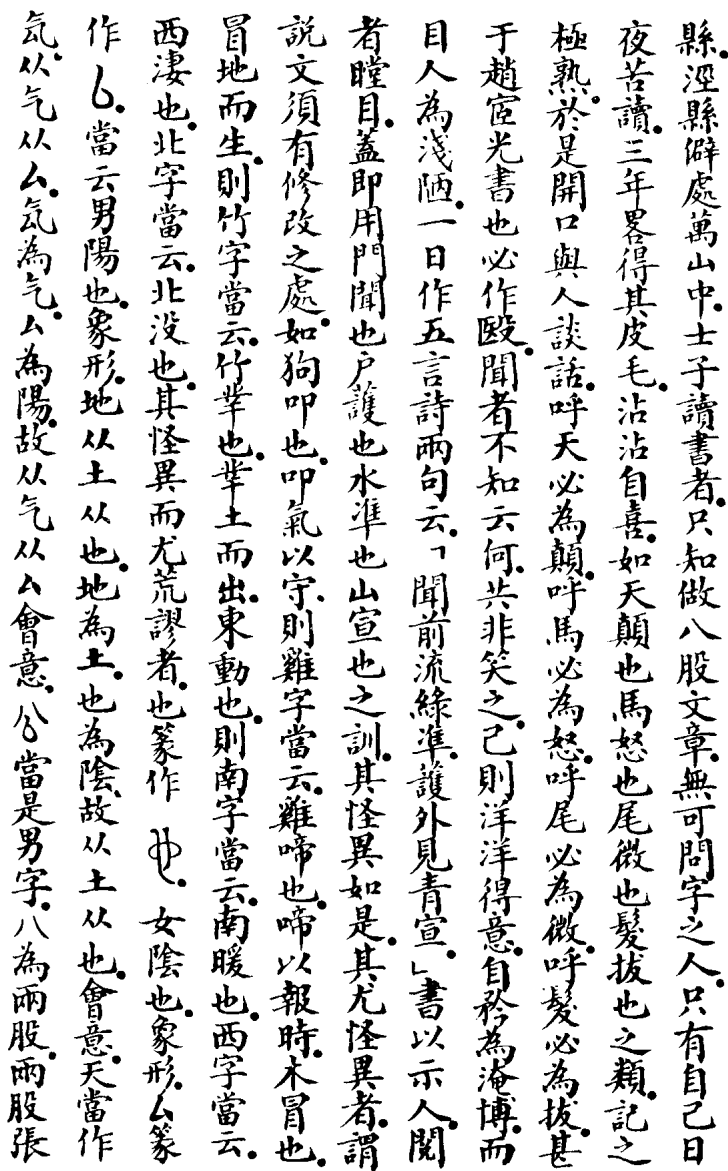 縣。涇縣僻處萬山中。士子讀書者。只知做八股文章。無可問字之人。只有自己日
夜苦讀。三年畧得其皮毛。沾沾自喜。如天顛也馬怒也尾微也髮拔也之類。記之
極熟。於是開口與人談話。呼天必為顛。呼馬必為怒。呼尾必為微。呼髮必為拔。甚
于趙宧光書也必作殹。聞者不知云何。共非笑之。己則洋洋得意。自矜為淹博。而
目人為淺陋。一日作五言詩兩句云。「聞前流綠準。護外見青宣。」書以示人。閱
者瞠目。蓋即用門聞也户護也水準也山宣也之訓。其怪異如是。其尤怪異者。謂
說文須有修改之處。如狗叩也。叩氣以守。則雞字當云。雞啼也。啼以報時。木冒也。
冒地而生。則竹字當云。竹䇫也。䇫土而出。東動也。則南字當云。南暖也。西字當云。
西淒也。北字當云。北没也。其怪異而尤荒謬者。也篆作 。女陰也。象形。厶篆
作 。當云男陽也。象形。地从土从也。地為土。也為陰。故从土从也。會意。天當作
㲴。从气从厶。㲴為气。厶為陽。故从气从厶會意。公當是男字。八為兩股。兩股張